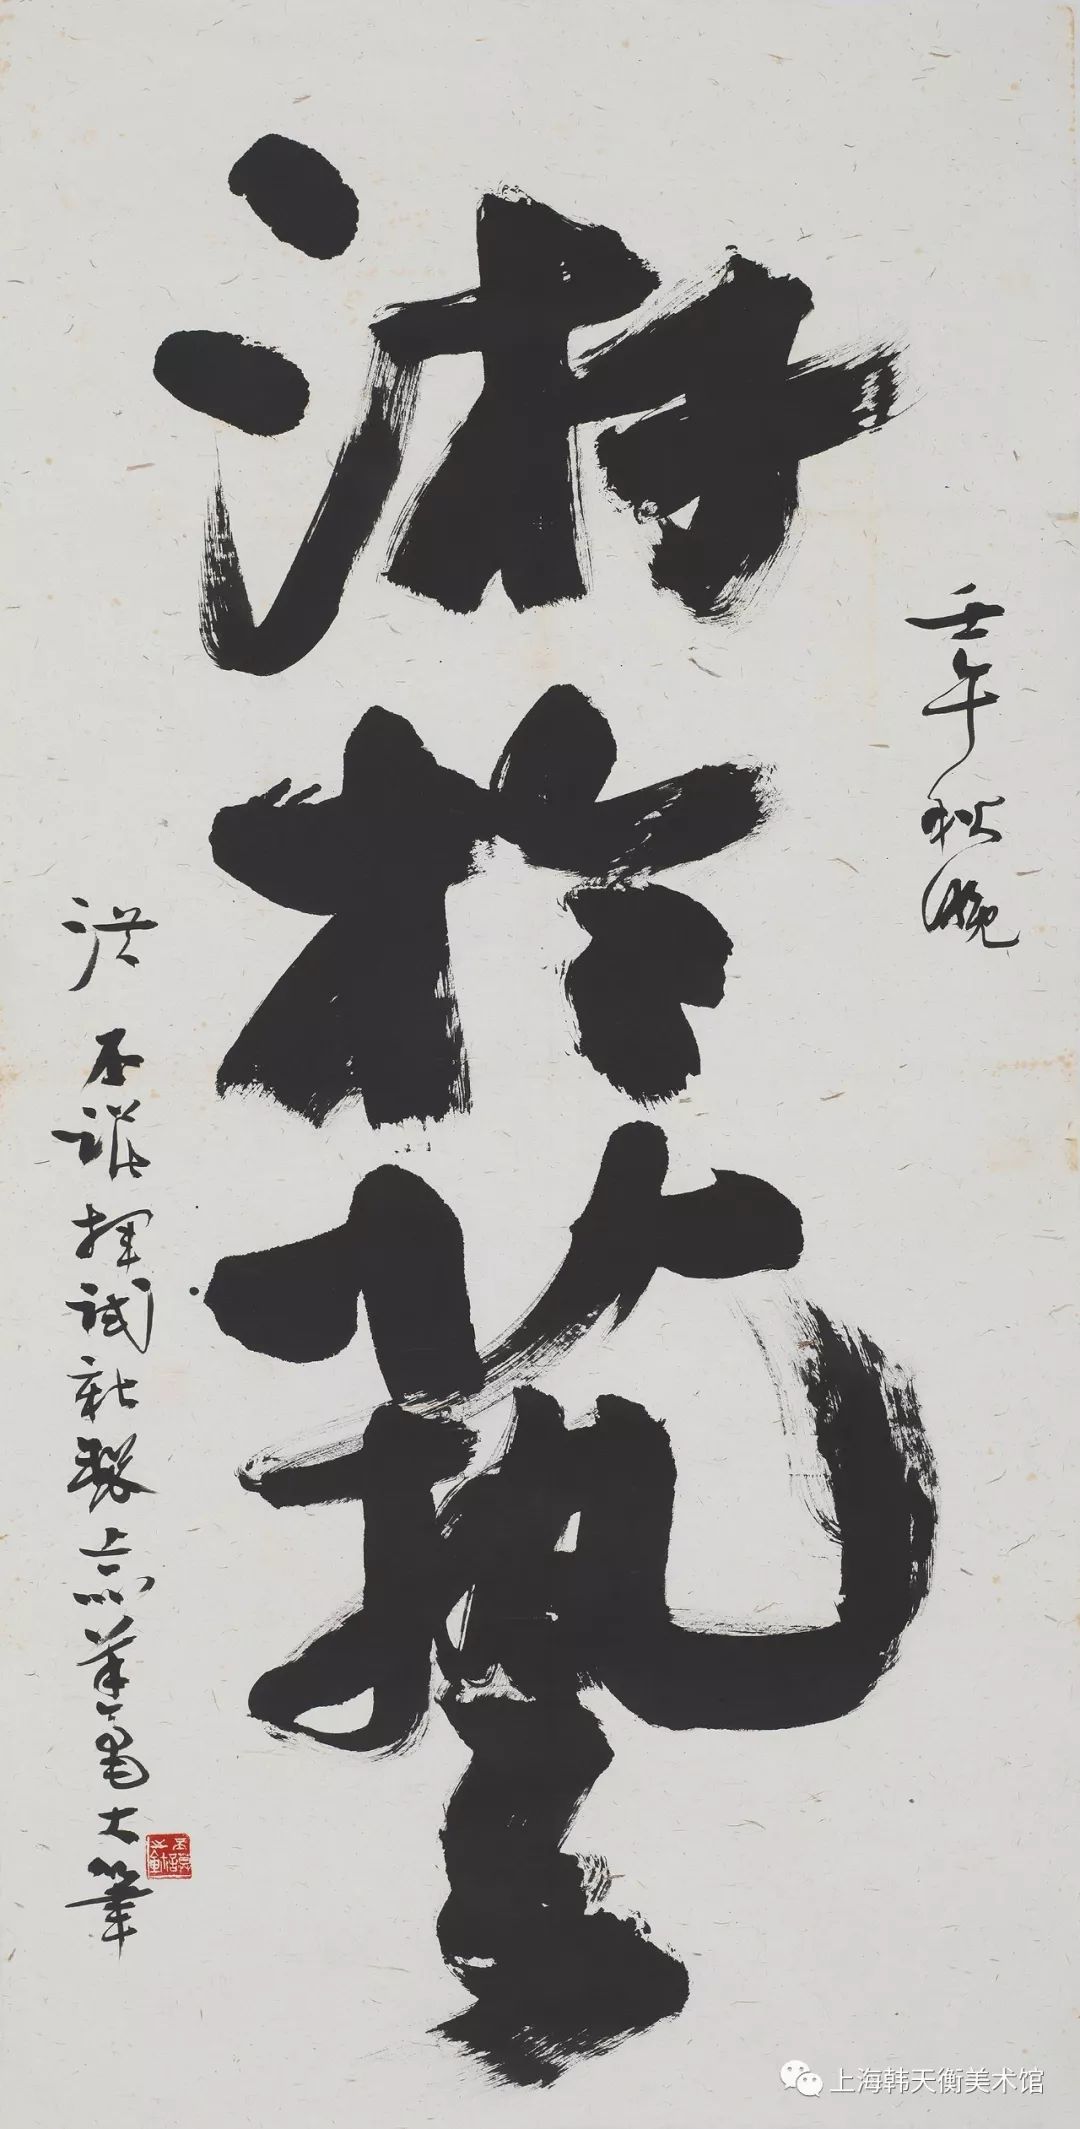 壬午秋晚
游於藝
洪丕謨揮試新製羊毫大筆
上海韩天衡美术馆